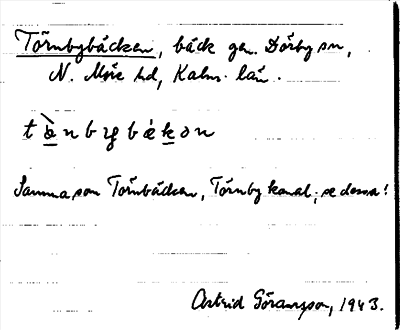 Törnbybäcken, bäck gm. Dörby sn,
N. Möre hd, Kalm. län.
tȍ̲nbybék̲ən
Samma som Törnbäcken, Törnby kanal; se dessa!
Astrid Göransson, 1943.